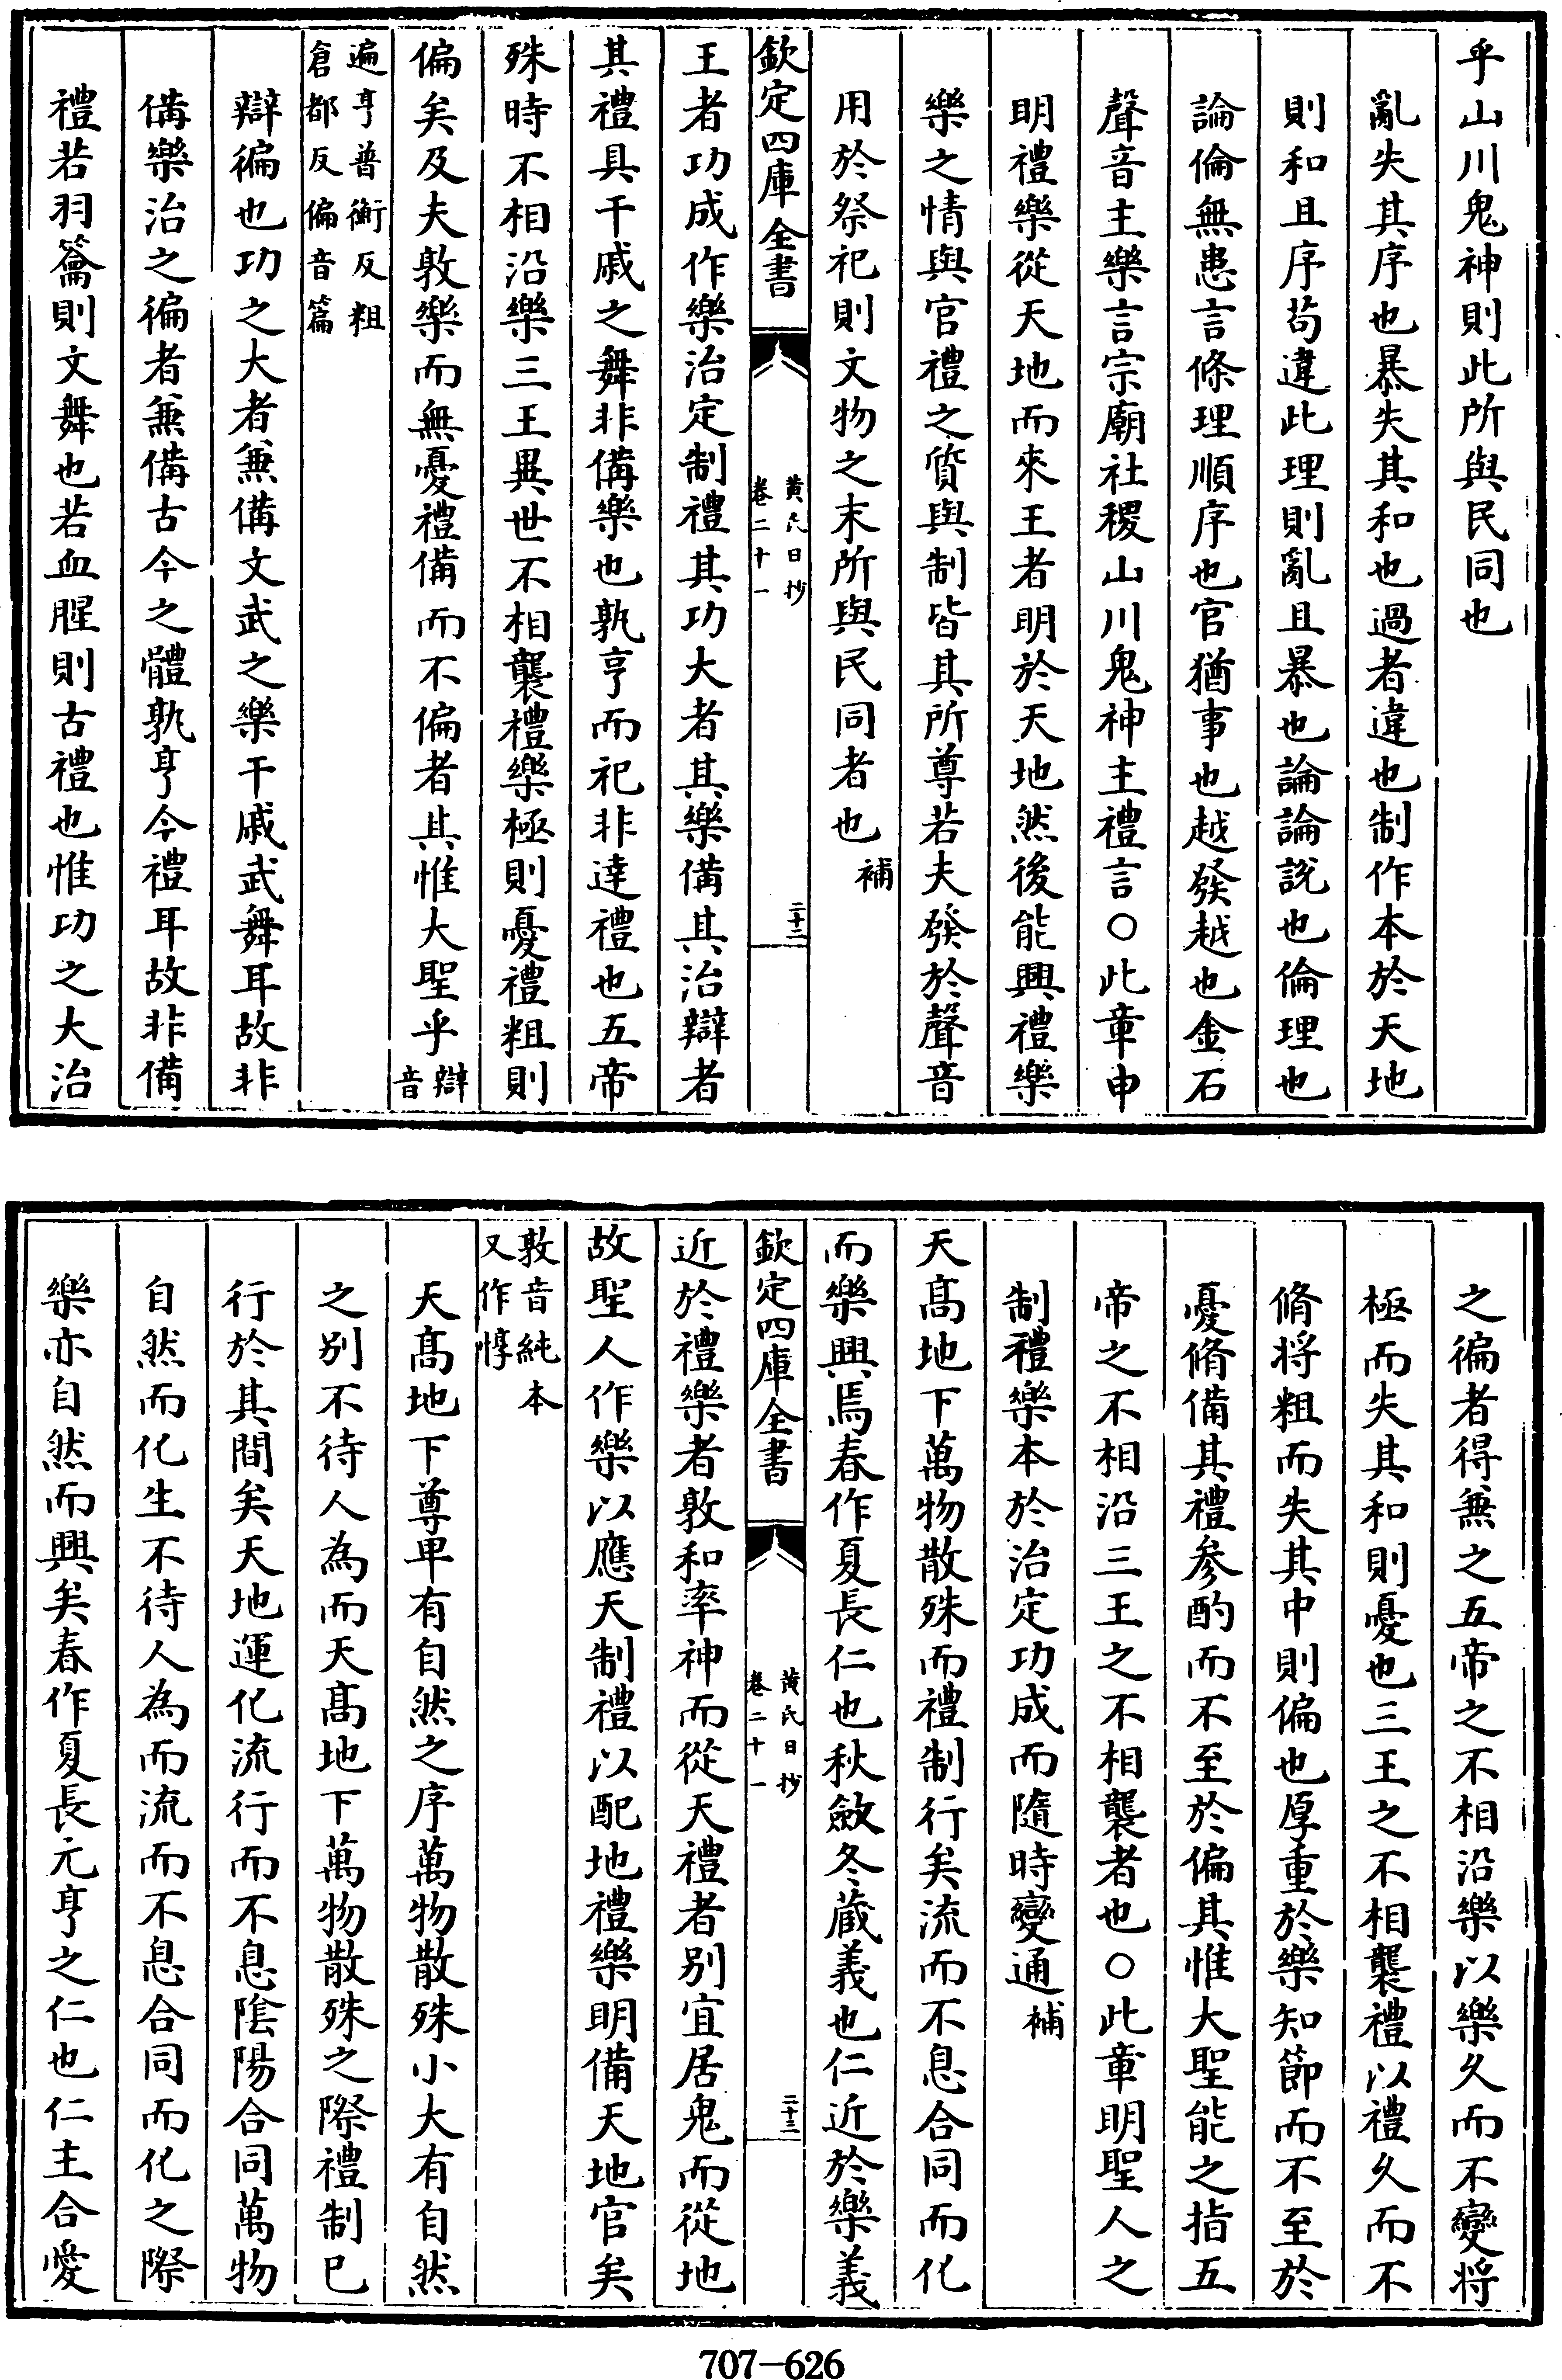 乎山川鬼神則此所與民同也
亂失其序也暴失其和也過者違也制作本於天地
則和且序茍違此理則亂且暴也論論說也倫理也
論倫無患言條理順序也官猶事也越發越也金石
聲音主樂言宗廟社稷山川鬼神主禮言○此章申
明禮樂從天地而來王者明於天地然後能興禮樂
樂之情與官禮之質與制皆其所尊若夫發於聲音
用於祭祀則文物之末所與民同者也補
欽定四庫全書
黃氏日抄
卷二十一
二十二
王者功成作樂治定制禮其功大者其樂備其治辯者
其禮具干戚之舞非備樂也孰亨而祀非達禮也五帝
殊時不相沿樂三王異世不相襲禮樂極則憂禮粗則
偏矣及夫敦樂而無憂禮備而不偏者其惟大聖乎辯
音
遍亨普衡反粗
倉都反偏音篇
辯徧也功之大者兼備文武之樂干戚武舞耳故非
備樂治之徧者兼備古今之體孰亨今禮耳故非備
禮若羽籥則文舞也若血腥則古禮也惟功之大治
之徧者得兼之五帝之不相沿樂以樂久而不變將
極而失其和則憂也三王之不相襲禮以禮久而不
脩將粗而失其中則偏也厚重於樂知節而不至於
憂脩備其禮參酌而不至於偏其惟大聖能之指五
帝之不相沿三王之不相襲者也○此章明聖人之
制禮樂本於治定功成而隨時變通補
天高地下萬物散殊而禮制行矣流而不息合同而化
而樂興焉春作夏長仁也秋斂冬藏義也仁近於樂義
欽定四庫全書
黃氏日抄
卷二十一
二十三
近於禮樂者敦和率神而從天禮者别宜居鬼而從地
故聖人作樂以應天制禮以配地禮樂明備天地官矣
敦音純本
又作惇
天高地下尊卑有自然之序萬物散殊小大有自然
之别不待人為而天高地下萬物散殊之際禮制已
行於其間矣天地運化流行而不息陰陽合同萬物
自然而化生不待人為而流而不息合同而化之際
樂亦自然而興矣春作夏長元亨之仁也仁主合愛
707—626